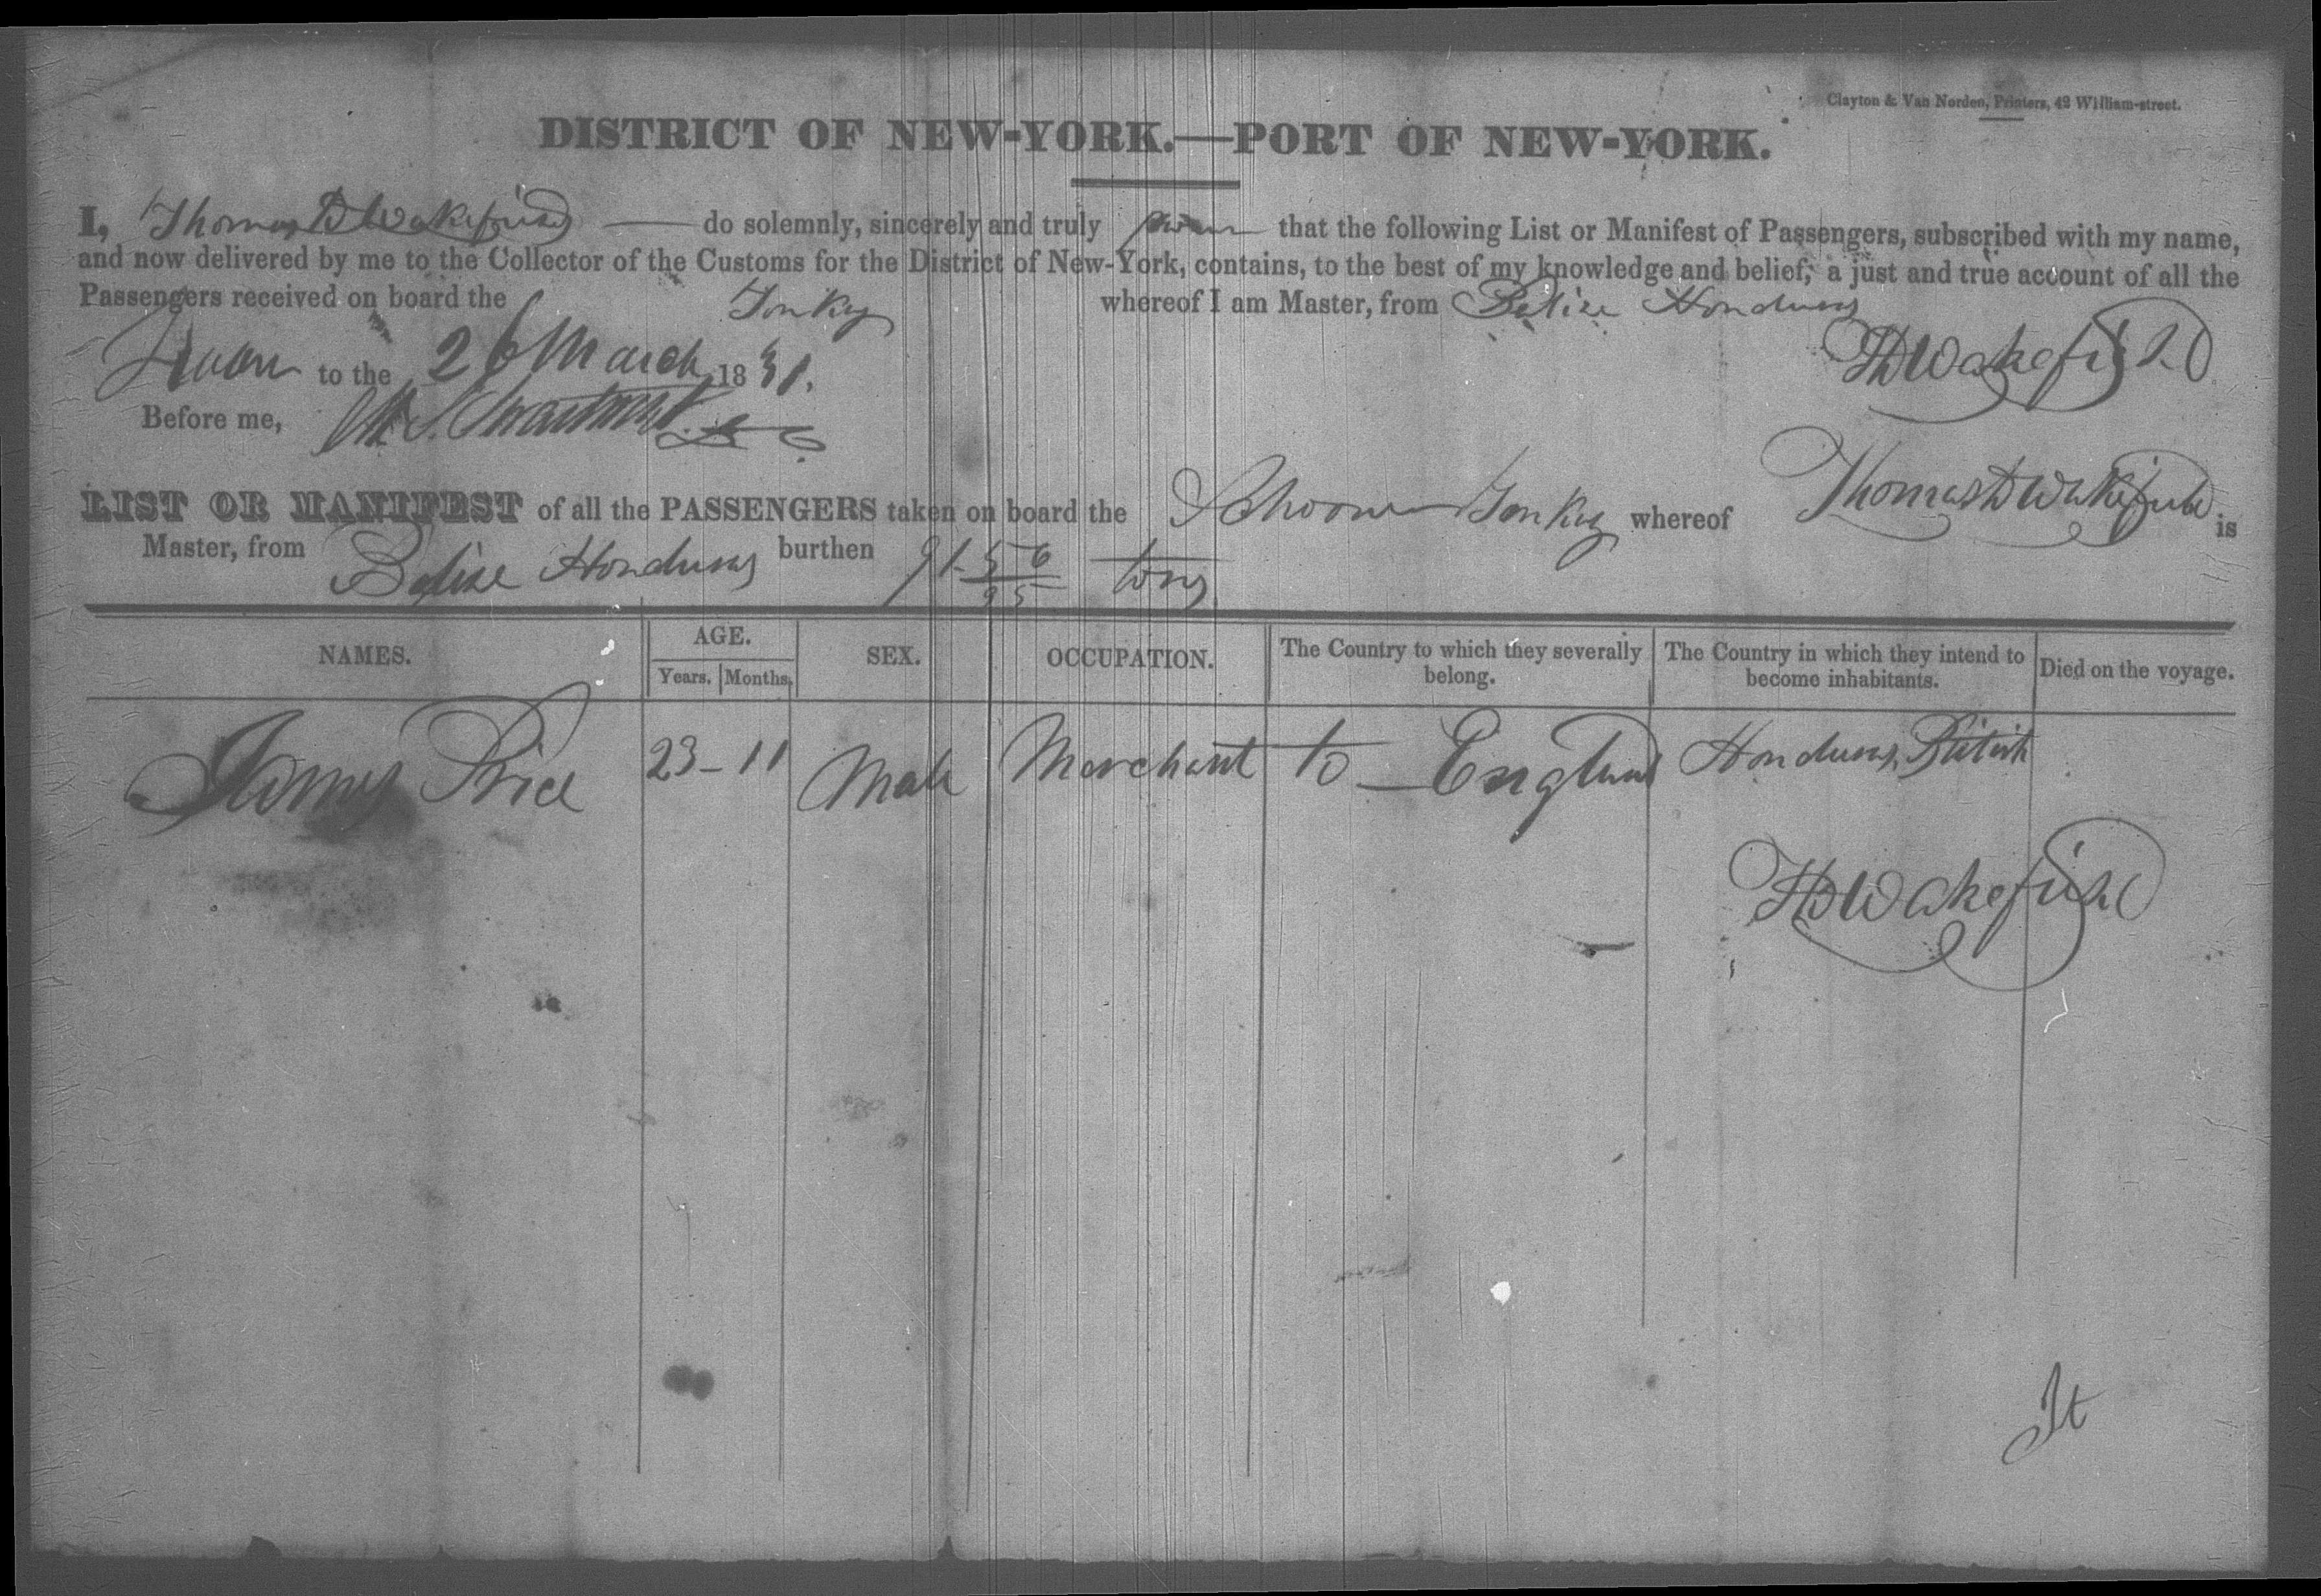 Clayton & Van Norden, Printers, 42 William-street.
DISTRICT OF NEW-YORK.—PORT OF NEW-YORK.
I, Thomas D Wakefield — do solemnly, sincerely and truly swear that the following List or Manifest of Passengers, subscribed with my name,
and now delivered by me to the Collector of the Customs for the District of New-York, contains, to the best of my knowledge and belief, a just and true account of all the
Passengers received on board the whereof I am Master, from Belize Honduras
Sworn to the 26 March 1831.
ThD Wakefield
Before me, Swartwout
LIST OR MANIFEST of all the PASSENGERS taken on board the Schooner whereof Thomas D Wakefield is
Master, from Belize Honduras burthen 91 56/95 tons
NAMES. AGE. SEX. OCCUPATION. The Country to which they severally belong. The Country in which they intend to become inhabitants. Died on the voyage.
Years. Months.
James Price 23-11 Male Merchant to — England Honduras, British
ThD Wakefield